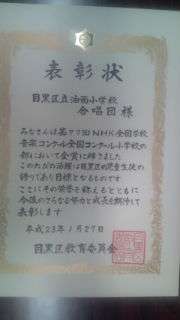 表彰状
目黒区立油面小学校
合唱団様
みなさんは第77回NHK全国学校
音楽コンクール全国コンクール小学校の
部において金賞に輝きました
このたびの活躍は目黒区の児童生徒の
誇りであり目標となるものです
ここにその栄誉を称えるとともに
今後のさらなる努力と成長を期待して
表彰します
平成23年1月27日
目黒区教育委員会